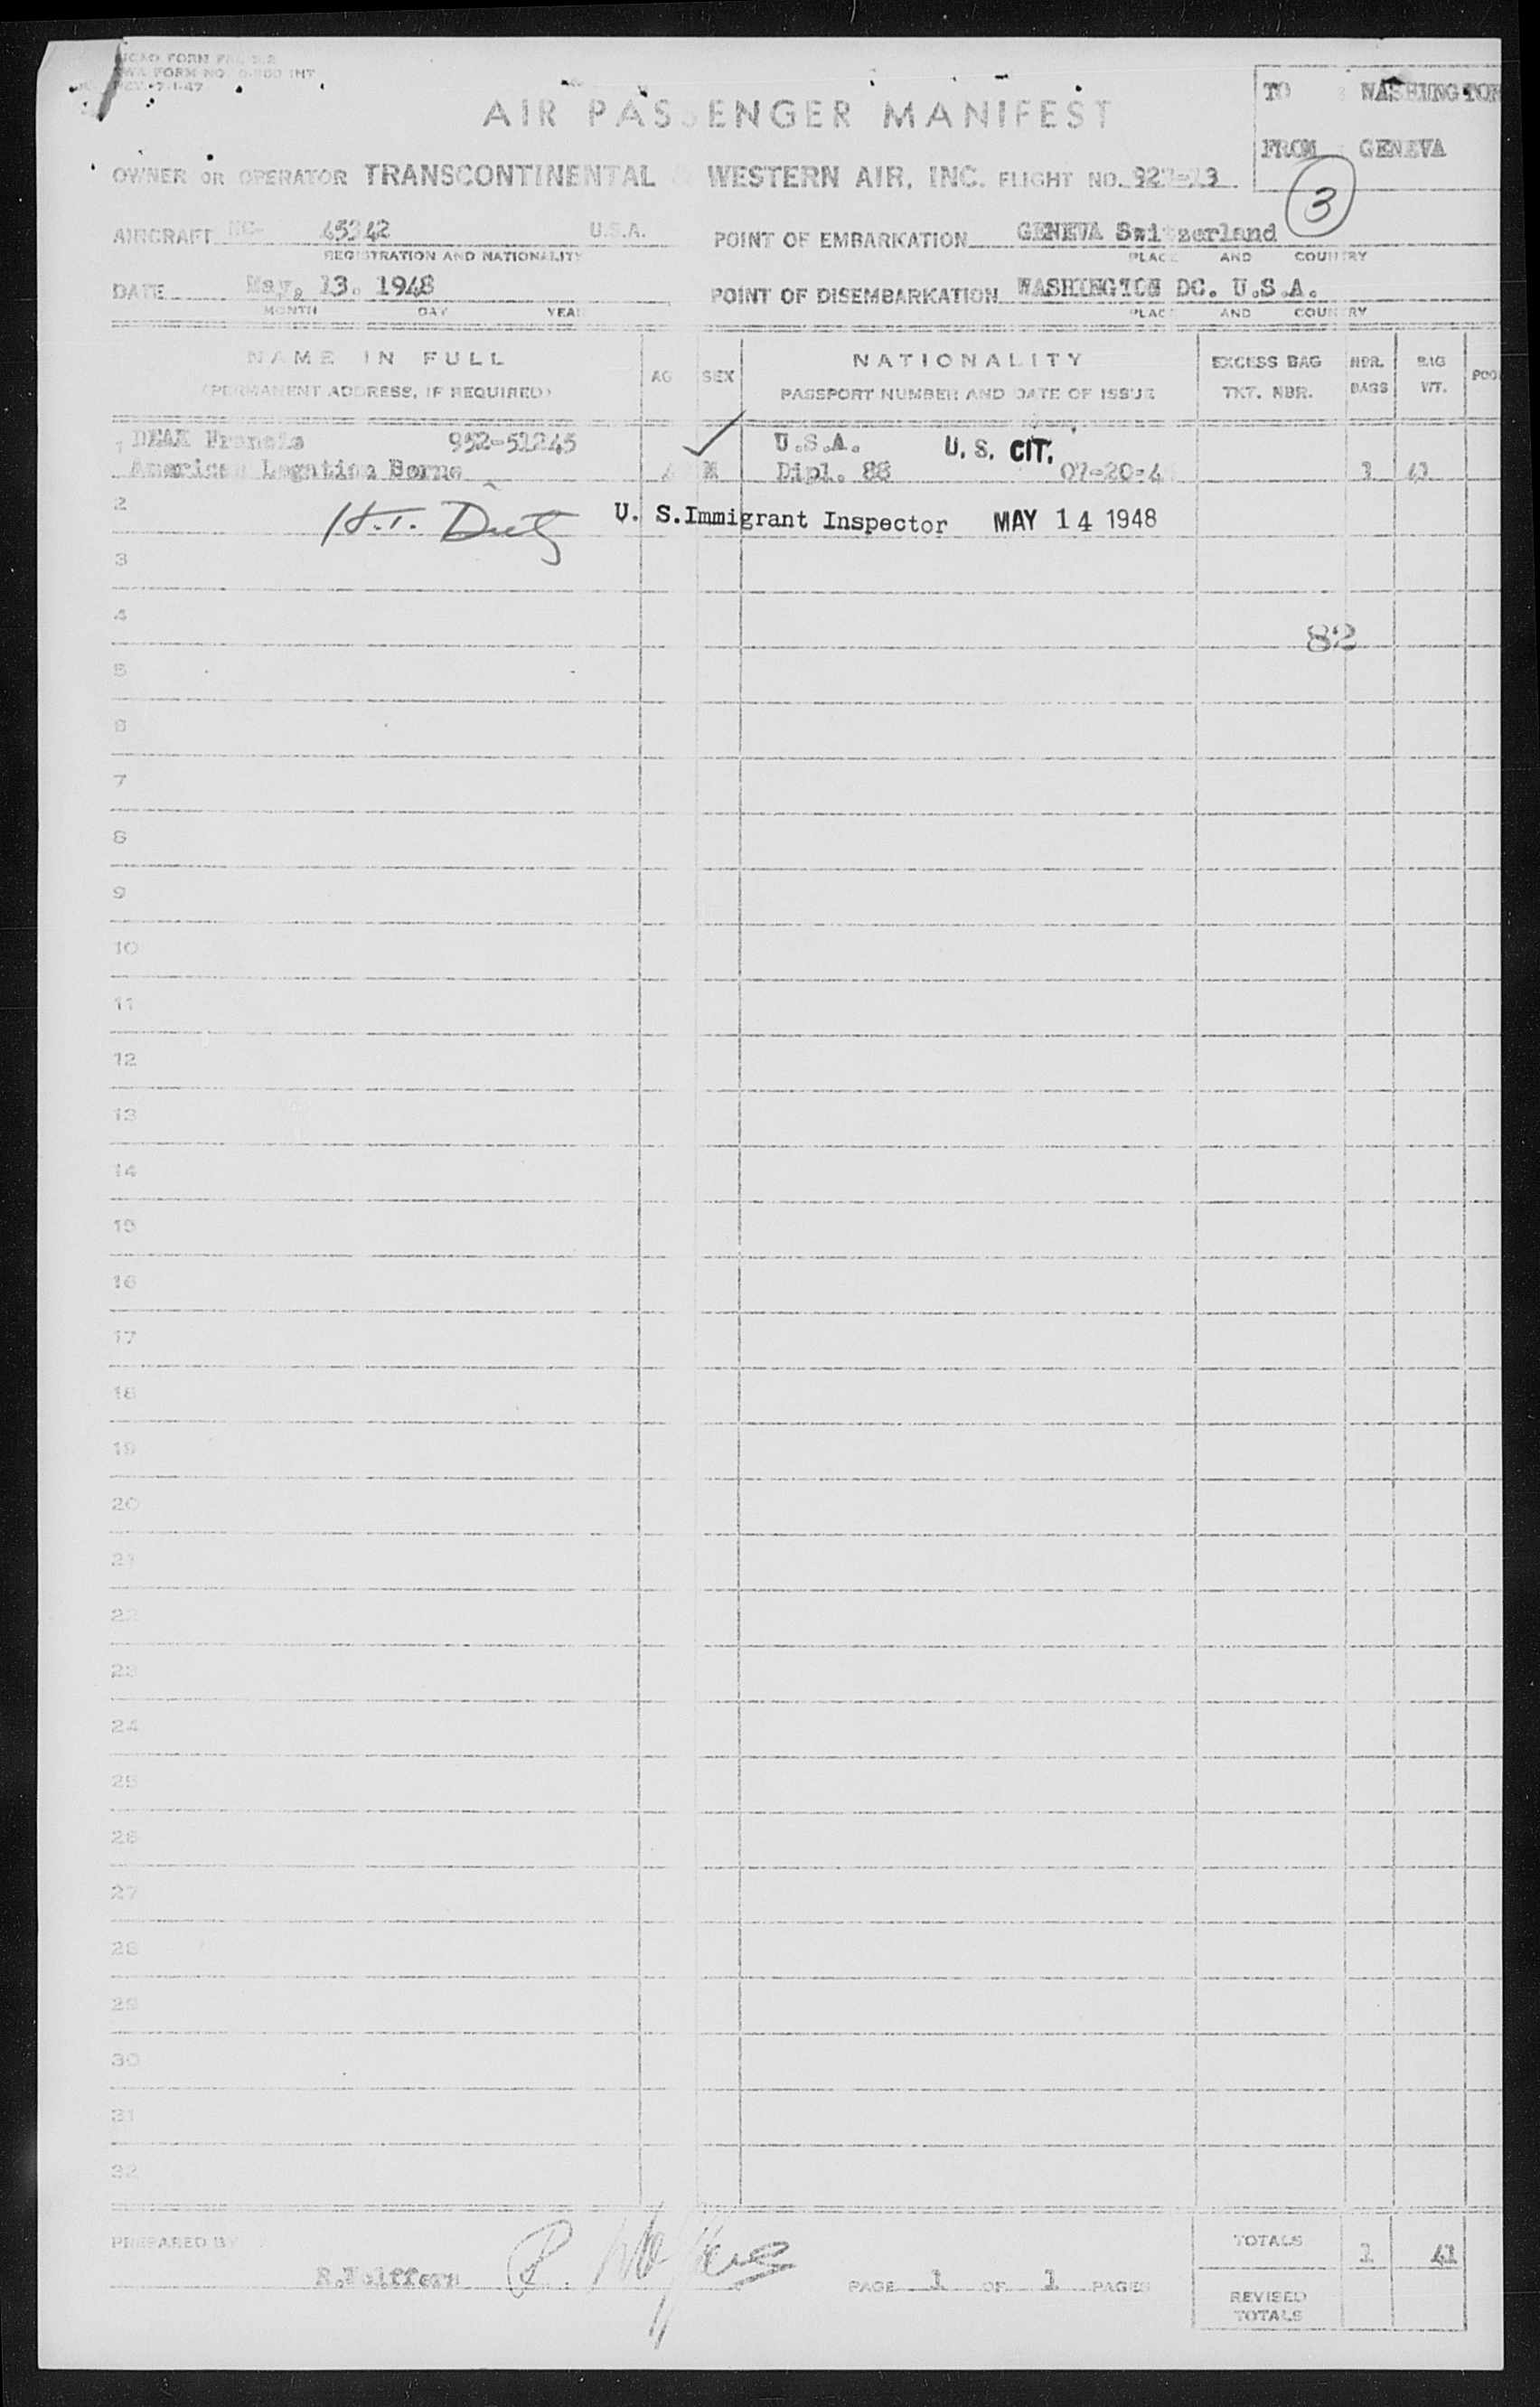 ICAO FORM
TWA FORM NO. INT
REV. 7-1-47
TO WASHINGTON
AIR PASSENGER MANIFEST
FROM GENEVA
OWNER OR OPERATOR TRANSCONTINENTAL & WESTERN AIR, INC. FLIGHT NO.
3
AIRCRAFT NC- 45342 U.S.A. POINT OF EMBARKATION GENEVA Switzerland
REGISTRATION AND NATIONALITY PLACE AND COUNTRY
DATE May, 13. 1948 POINT OF DISEMBARKATION WASHINGTON DC. U.S.A.
MONTH DAY YEAR PLACE AND COUNTRY
NAME IN FULL AGE SEX NATIONALITY EXCESS BAG NBR. BAG
(PERMANENT ADDRESS, IF REQUIRED) PASSPORT NUMBER AND DATE OF ISSUE TKT. NBR. BAGS WT.
1 DEAK Francis 952-51245 U.S.A. U. S. CIT.
American Legation Berne M Dipl. 88 07-20-4
2 U. S. Immigrant Inspector MAY 14 1948
3
4
82
5
6
7
8
9
10
11
12
13
14
15
16
17
18
19
20
21
22
23
24
25
26
27
28
29
30
31
32
PREPARED BY TOTALS 1 41
PAGE 1 OF 1 PAGES
REVISED
TOTALS